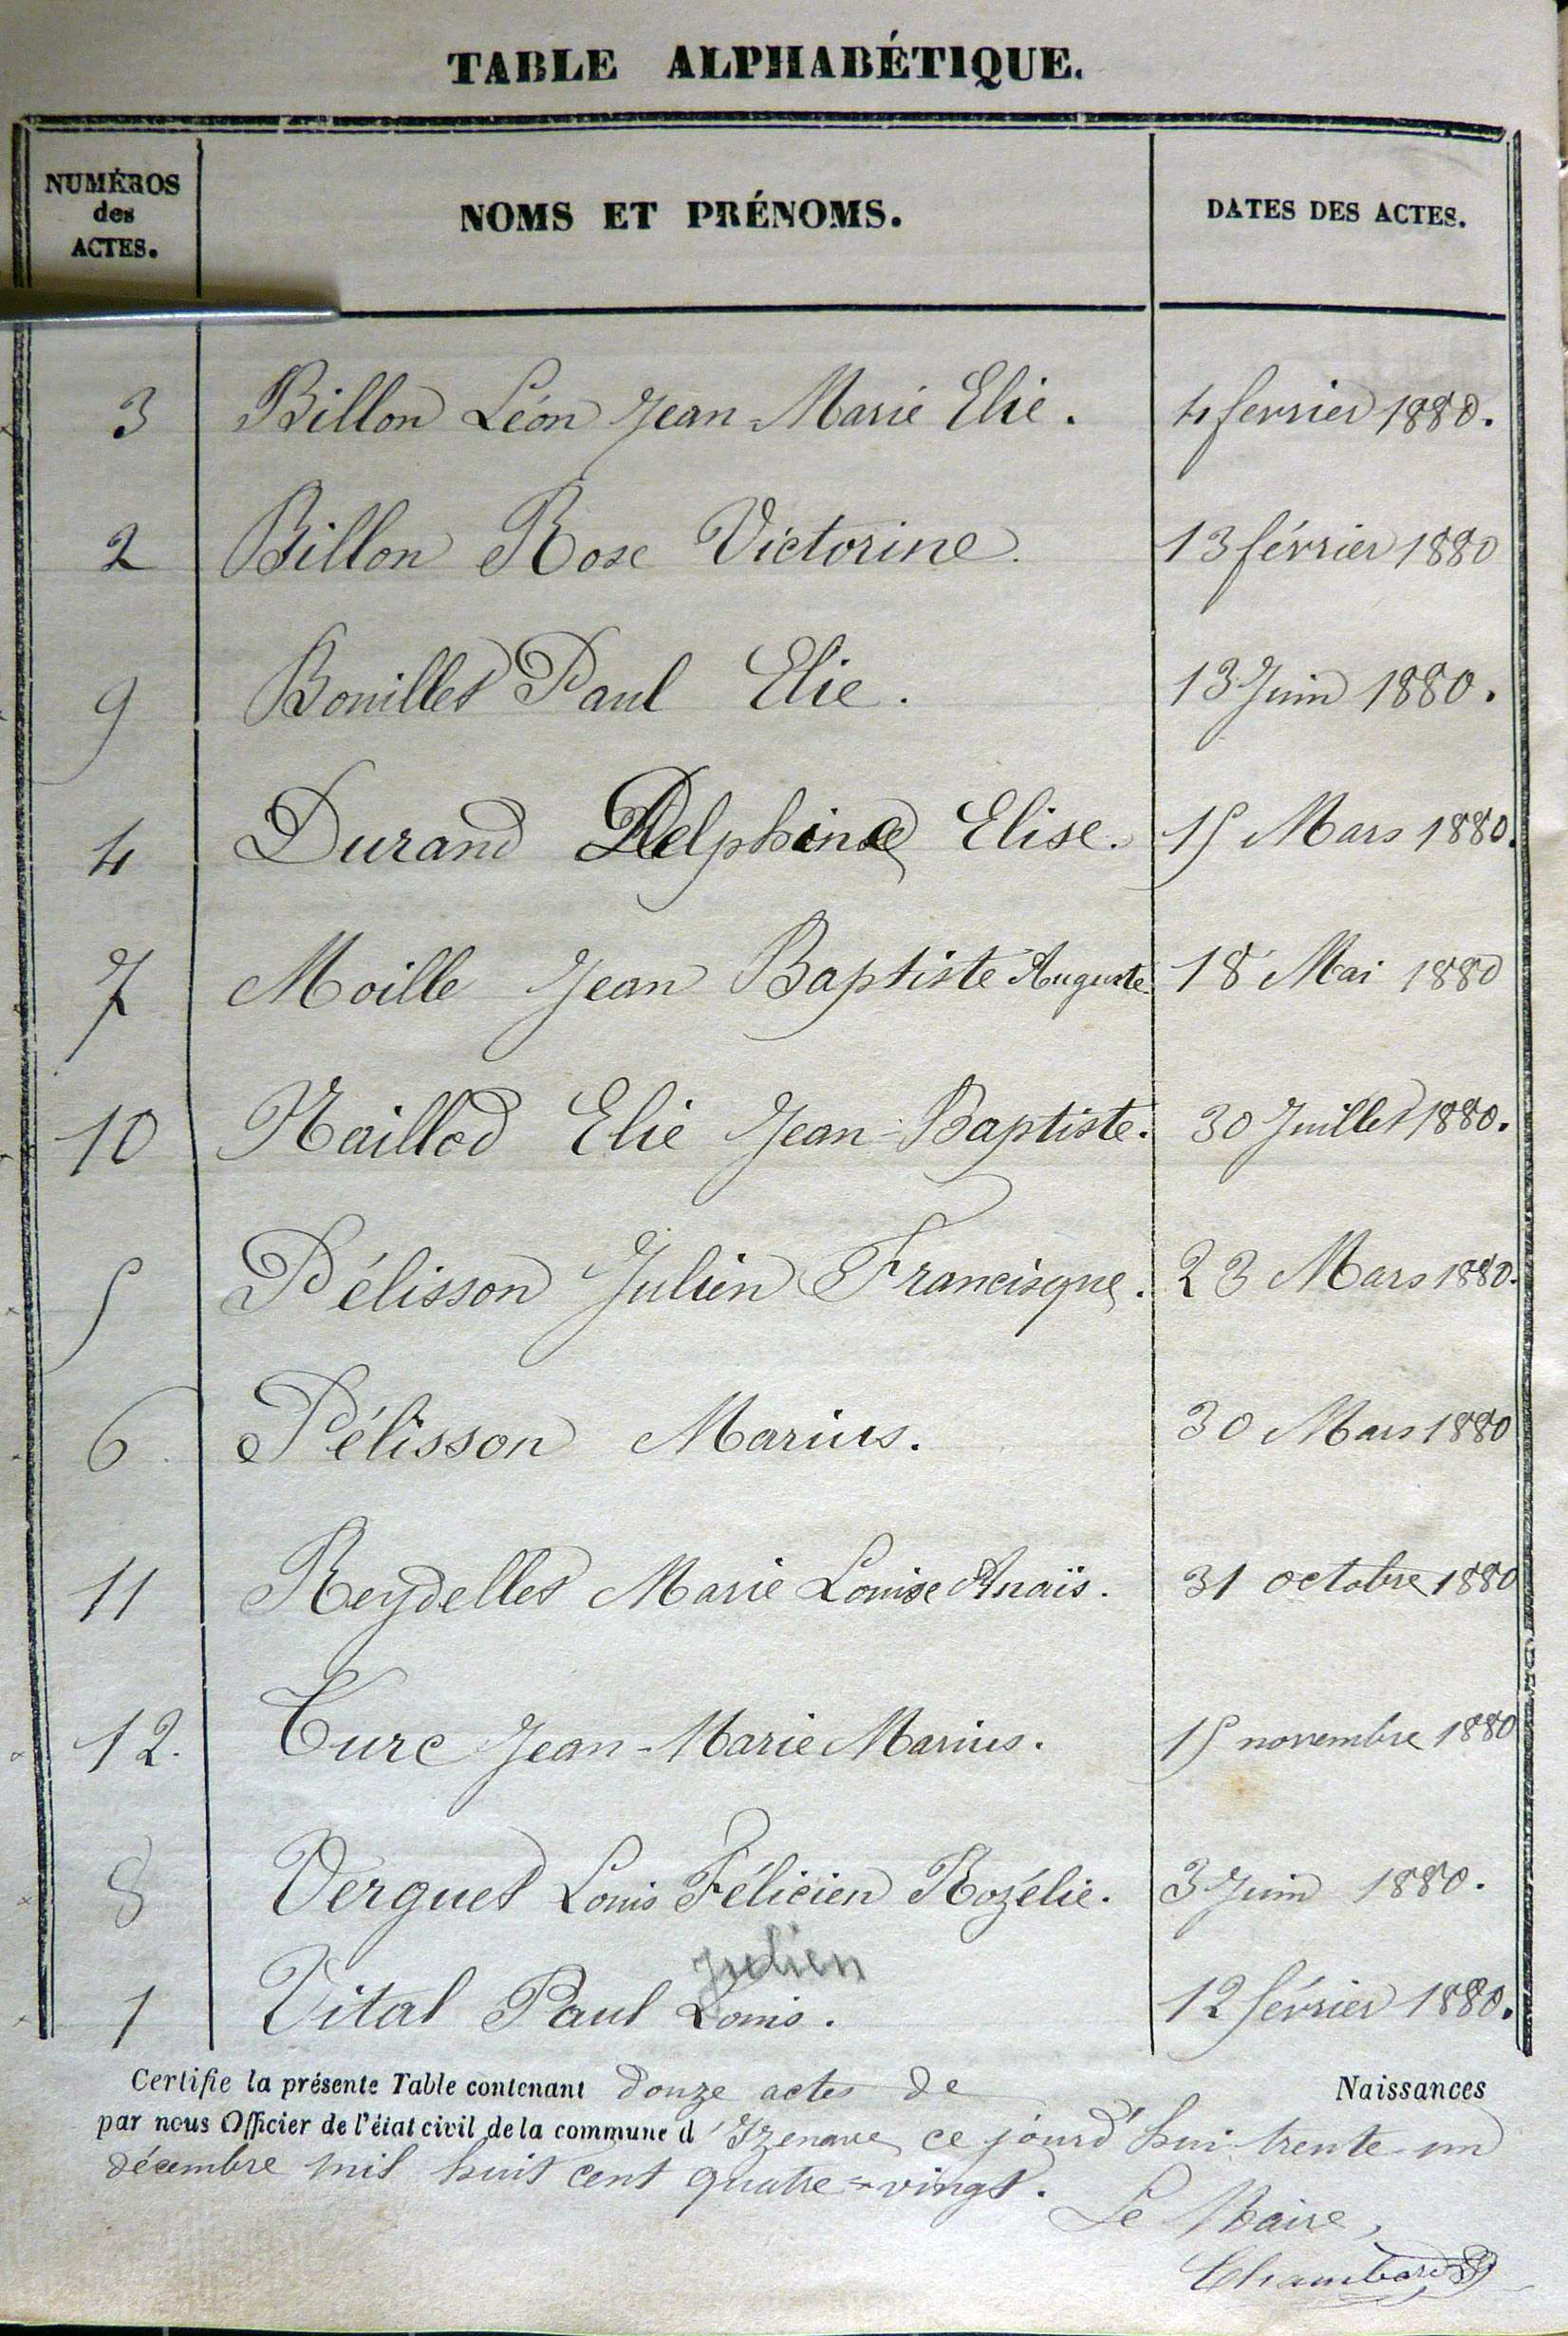 TABLE ALPHABÉTIQUE.
NUMÉROS
des
ACTES.
NOMS ET PRÉNOMS.
DATES DES ACTES.
3 Billon Léon Jean-Marie Elie. 4 fevrier 1880.
2 Billon Rose Victorine. 13 février 1880
9 Bouillet Paul Elie. 13 Juin 1880.
4 Durand Delphine Elise. 15 Mars 1880.
7 Moille Jean Baptiste Auguste 18 Mai 1880
10 Naillod Elie Jean-Baptiste. 30 Juillet 1880.
5 Pélisson Julien Francisque. 23 Mars 1880.
6 Pélisson Marius. 30 Mars 1880
11 Reydellet Marie Louise Anaïs. 31 octobre 1880
12. Turc Jean-Marie Marius. 15 novembre 1880
8 Verguet Louis Félicien Rozélie. 3 Juin 1880.
Julien
1 Vital Paul Louis. 12 février 1880.
Certifie la présente Table contenant douze actes de Naissances
par nous Officier de l'état civil de la commune d'Izenave ce jourd'hui trente-un
décembre mil huit cent quatre=vingt.
Le Maire,
Chambard